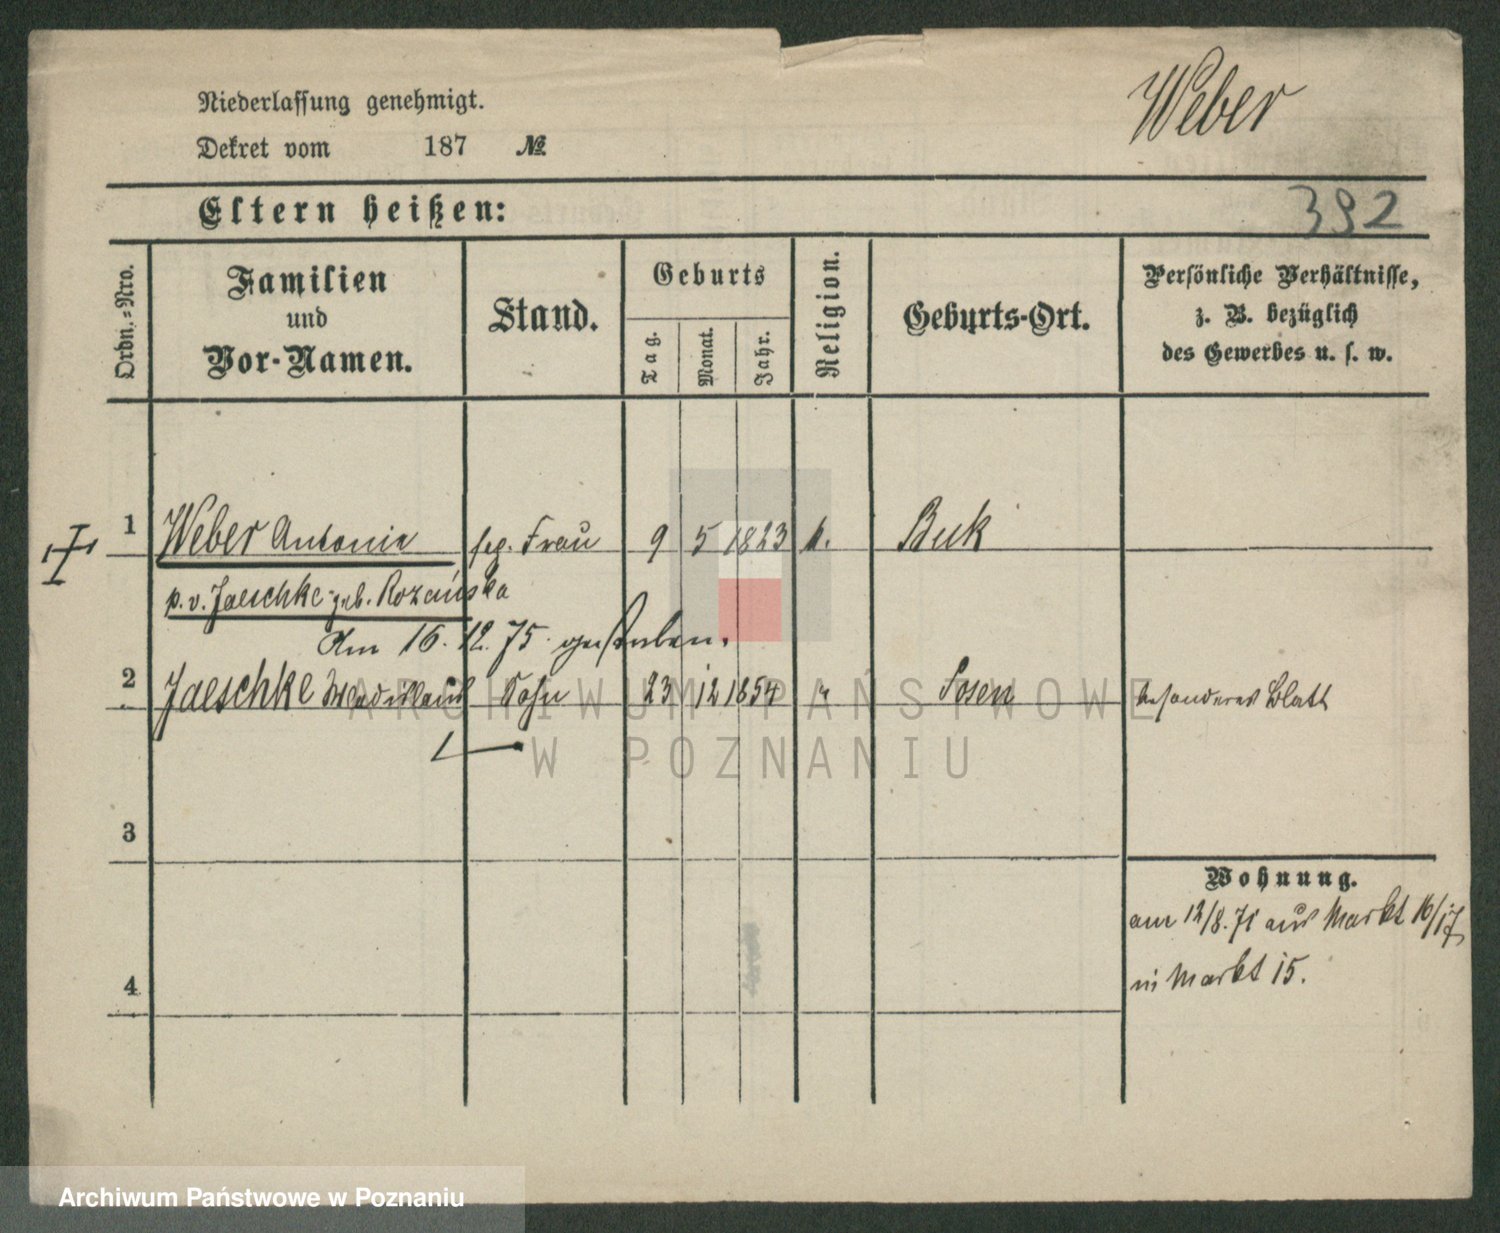 Niederlassung genehmigt.
Dekret vom 187 №
Weber
Eltern heißen:
392
Ordn.=Nro.
Familien
und
Vor-Namen.
Stand.
Geburts
Tag.
Monat.
Jahr.
Religion.
Geburts-Ort.
Persönliche Verhältnisse,
z. B. bezüglich
des Gewerbes u. s. w.
1 Weber Antonie Frau 9 5 1823 k. Buk
p. v. Jaeschke geb. Rozańska
Am 16. 12. 75. gestorben.
2 Jaeschke Sohn 23 12 1854 Posen besonderes Blatt
3
Wohnung.
am 12/8. 71 aus Markt 16/17
in Markt 15.
4
ARCHIWUM PAŃSTWOWE
W POZNANIU
Archiwum Państwowe w Poznaniu